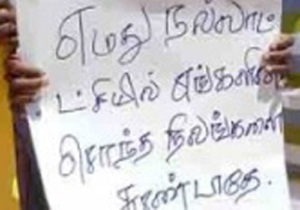 எமது நல்லாட்
டசியில் எங்களின்
சொந்த நிலங்களை
சூண்டாதே.